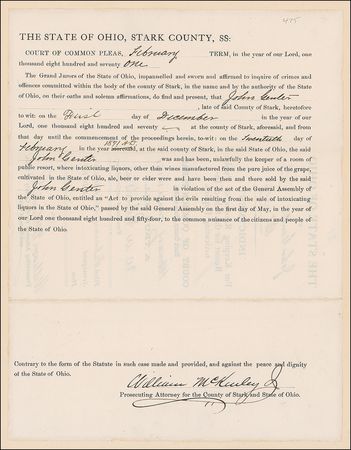 475
THE STATE OF OHIO, STARK COUNTY, SS:
COURT OF COMMON PLEAS, February TERM, in the year of our Lord, one
thousand eight hundred and seventy one
The Grand Jurors of the State of Ohio, impannelled and sworn and affirmed to inquire of crimes and
offences committed within the body of the county of Stark, in the name and by the authority of the State
of Ohio, on their oaths and solemn affirmations, do find and present, that John Genter
, late of said County of Stark, heretofore
to-wit: on the First day of December in the year of our
Lord, one thousand eight hundred and seventy at the county of Stark, aforesaid, and from
that day until the commencement of the proceedings herein, to-wit: on the Twentieth day of
February in the year 1871 A.D., at the said county of Stark, in the said State of Ohio, the said
John Genter was and has been, unlawfully the keeper of a room of
public resort, where intoxicating liquors, other than wines manufactured from the pure juice of the grape,
cultivated in the State of Ohio, ale, beer or cider were and have been then and there sold by the said
John Genter in violation of the act of the General Assembly of
the State of Ohio, entitled an "Act to provide against the evils resulting from the sale of intoxicating
liquors in the State of Ohio," passed by the said General Assembly on the first day of May, in the year of
our Lord one thousand eight hundred and fifty-four, to the common nuisance of the citizens and people of
the State of Ohio.
Contrary to the form of the Statute in such case made and provided, and against the peace and dignity
of the State of Ohio.
William McKinley Jr
Prosecuting Attorney for the County of Stark and State of Ohio.